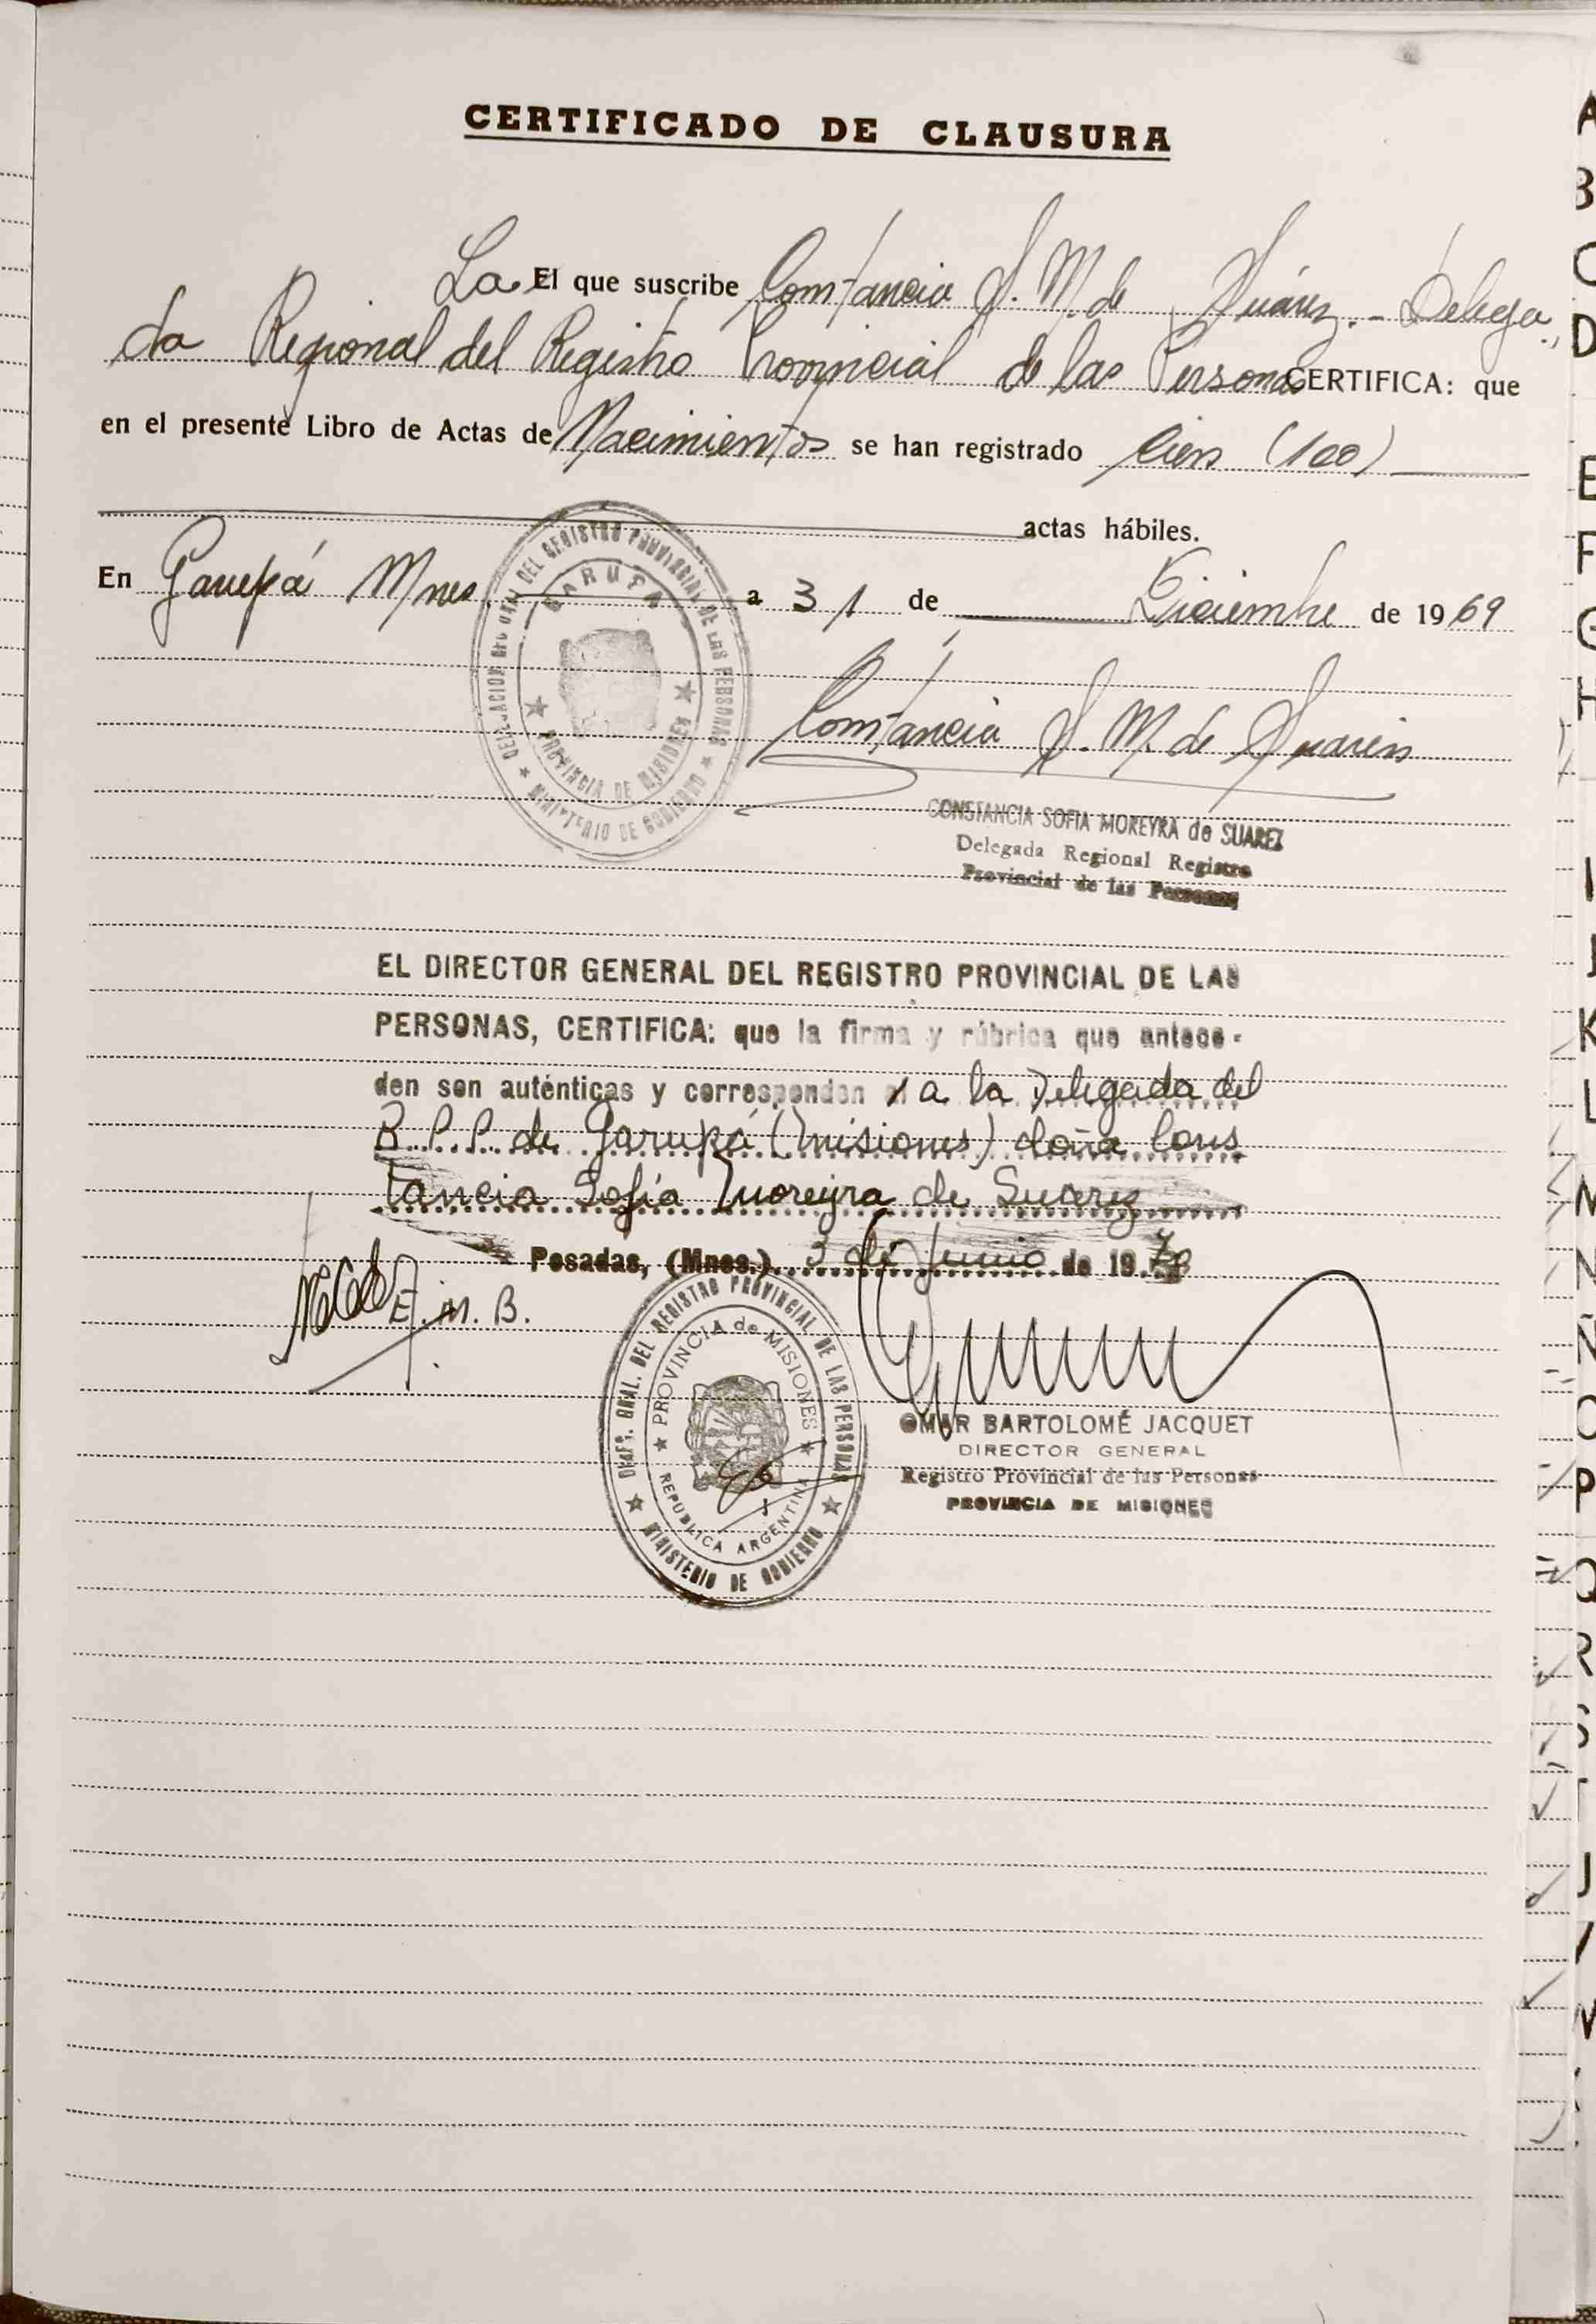 CERTIFICADO DE CLAUSURA
La El que suscribe Constancia S. M. de Suárez.- Delega
da Regional del Registro Provincial de las Personas CERTIFICA: que
en el presente Libro de Actas de Nacimientos se han registrado Cien (100)
actas hábiles.
En Garupá Mnes. a 31 de Diciembre de 1969
DELEGACION REGIONAL DEL REGISTRO PROVINCIAL DE LAS PERSONAS
GARUPA
PROVINCIA DE MISIONES
MINISTERIO DE GOBIERNO
Constancia S. M. de Suárez
CONSTANCIA SOFIA MOREYRA de SUAREZ
Delegada Regional Registro
Provincial de las Personas
EL DIRECTOR GENERAL DEL REGISTRO PROVINCIAL DE LAS
PERSONAS, CERTIFICA: que la firma y rúbrica que antece-
den son auténticas y corresponden al a la Delegada del
R.P.P. de Garupá (Misiones) doña Cons
tancia Sofía Moreyra de Suarez
Posadas, (Mnes.) 3 de Junio de 1970
E. M. B.
GRAL. DEL REGISTRO PROVINCIAL DE LAS PERSONAS
PROVINCIA de MISIONES
REPUBLICA ARGENTINA
MINISTERIO DE GOBIERNO
OMAR BARTOLOMÉ JACQUET
DIRECTOR GENERAL
Registro Provincial de las Personas
PROVINCIA DE MISIONES
A
B
C
D
E
F
G
H
I
J
K
L
M
N
Ñ
O
P
Q
R
S
T
U
V